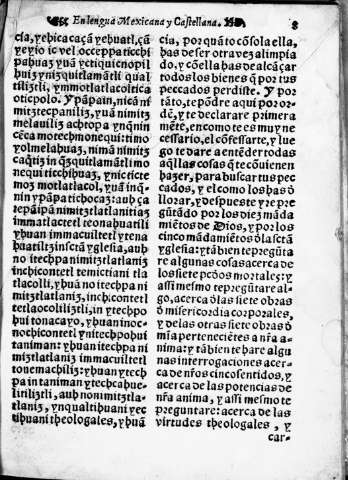 En lengua Mexicana y Castellana. 8
cia, yhicacaçã yehuatl, cã
yeyio ic vel occeppa ticchi
pahuaz yuã yctiquicnopil
huiz ynizquitlamãtli qual
tiliztli, yn motlatlacoltica
oticpolo. Y pãpa in, nicã ni
mitztecpaniliz, yuã nimitz
melauiliz achtopa yn quenin
cẽca motech monequi timo
yolmelahuaz, niman nimitz
caqtiz in qzquitlamãtli mo
nequi ticchihuaz, ynic ticte
moz motlatlacol, yuã in q
nin ypãpa tichocaz: auh ça
tepãipã nimitztlatlanitiaz
immatlactetl teonahuatili
yhuan immacuiltetl ytena
huatiltzi in sctã yglesia, auh
no itechpa nimitztlatlaniz
inchicontetl temictiani tla
tlacolli, yhuã no itechpa ni
mitztlatlaniz, inchicontetl
tetlaocoliliztli, in ytechpo
hui tonacayo, yhuan inoc
nochicontetl ynitechpohui
taniman: yhuan itechpa ni
mitztlatlaniz immacuiltetl
touemachiliz: yhuan ytech
pa in taniman ytechcahue
litiliztli, auh nonimitztla
tlaniz, ynqualtihuani yec
tihuani theologales, yhuã
cia, por quãto cõsola ella,
has de ser otra vez alimpia
do, y cõ ella has de alcãçar
todos los bienes q por tus
peccados perdiste. Y por
tãto, te põdre aqui por or-
dẽ, y te declarare primera
mẽte, en como te es muy ne
cessario, el cõfessarte, y lue
go te dare a entẽder todas
aqllas cosas que te cõuienen
hazer, para buscar tus pec
cados, y el como los has ð
llorar, y despues te yre pre
gũtãdo por los diez mãda
miẽtos de Dios, y por los
cinco mãdamiẽtos ð la sctã
yglesia: y tãbien te pregũta
re algunas cosas acerca de
los siete pcõos mortales: y
assi mesmo te pregũtare al-
go, acerca ð las siete obras
ð misericordia corporales,
y de las otras siete obras ð
mia pertenecietes a nra a-
nima: y tãbien te hare algu
nas interrogaciones acer-
ca de nros cinco sentidos, y
acerca de las potencias de
nra anima, y assi mesmo te
preguntare: acerca de las
virtudes theologales, y
car-